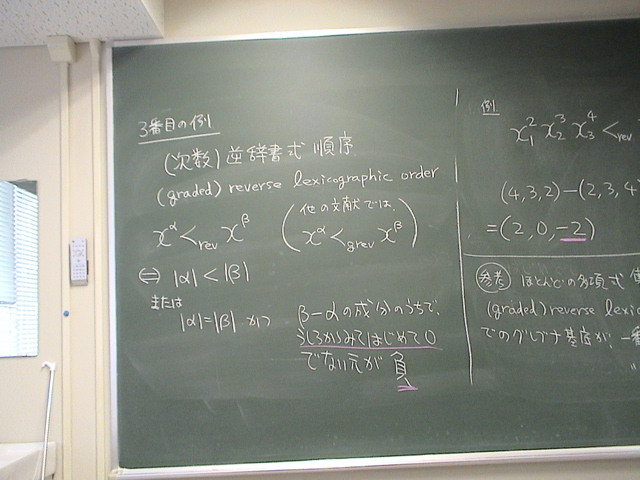 3番目の例
(次数) 逆辞書式 順序
(graded) reverse lexicographic order
x^α <_rev x^β
(他の文献では, x^α <_grev x^β)
⇔ |α| < |β|
または
|α| = |β| かつ
β−αの成分のうちで,
うしろからみてはじめて0
でない元が 負
例
x_1^2 x_2^3 x_3^4 <_rev
(4,3,2)−(2,3,4
=(2,0,−2)
参考 ほとんどの多項式
(graded) reverse lexic
でのグレブナ基底が, 一番